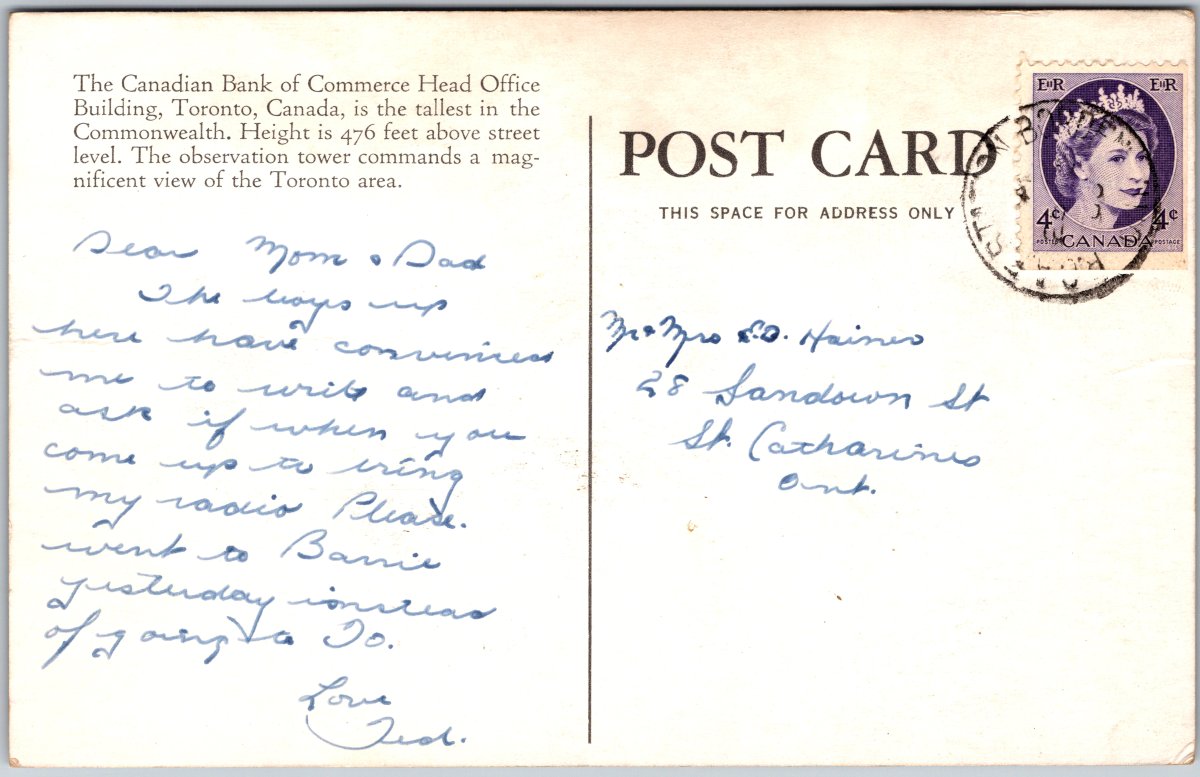 The Canadian Bank of Commerce Head Office
Building, Toronto, Canada, is the tallest in the
Commonwealth. Height is 476 feet above street
level. The observation tower commands a mag-
nificent view of the Toronto area.
Dear Mom & Dad
The boys up
here have convinced
me to write and
ask if when you
come up to bring
my radio Please.
went to Barrie
yesterday instead
of going to To.
Love
Ted.
POST CARD
THIS SPACE FOR ADDRESS ONLY
EIIR EIIR
4c 4c
POSTES CANADA POSTAGE
BORDEN
Mr & Mrs E.D. Haines
28 Sandown St
St. Catharines
Ont.